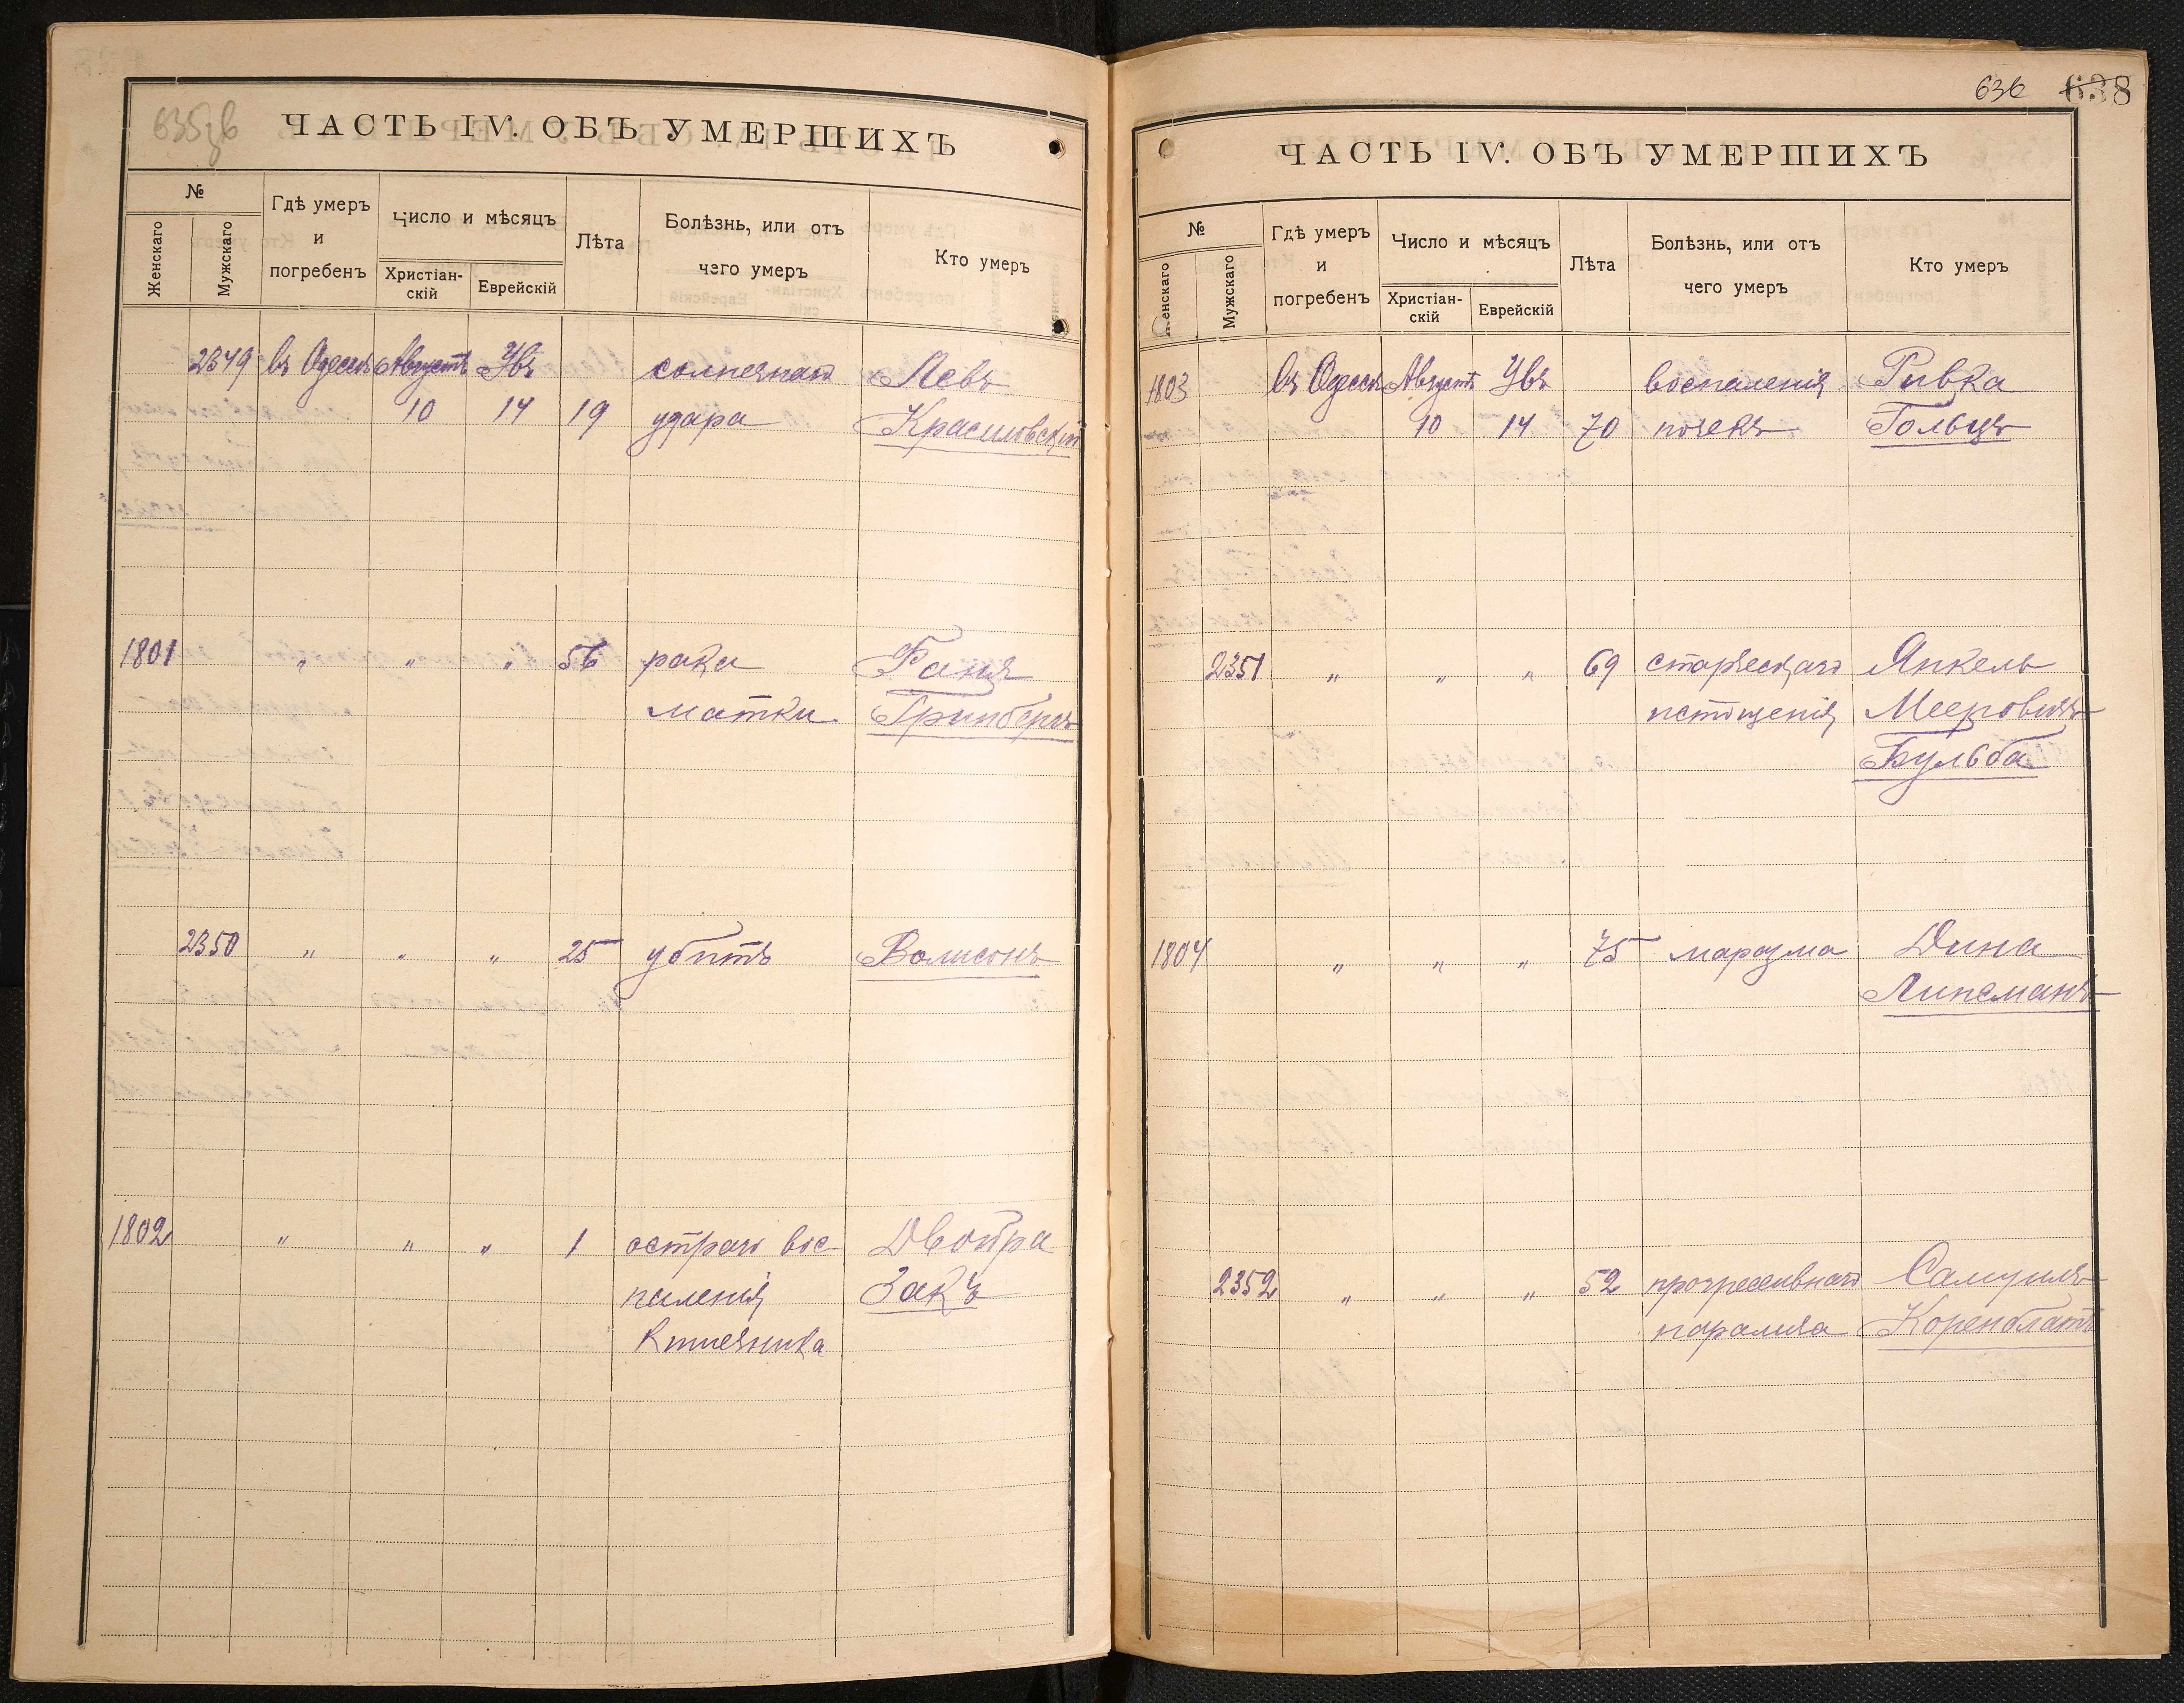 635зв
ЧАСТЬ IV. ОБЪ УМЕРШИХЪ
№
Женскаго
Мужскаго
Гдѣ умеръ
и
погребенъ
Число и мѣсяцъ
Христіан-
скій
Еврейскій
Лѣта
Болѣзнь, или отъ
чего умеръ
Кто умеръ
2349 въ Одессѣ Августъ Увъ солнечнаго Левъ
10 14 19 удара Красиловскій
1801 " " " 56 рака Фаня
матки Гринбергъ
2350 " " " 25 убитъ
1802 " " " 1 остраго вос-
паленія
кишечника
Двойра
Закъ
636 638
ЧАСТЬ IV. ОБЪ УМЕРШИХЪ
№
Женскаго
Мужскаго
Гдѣ умеръ
и
погребенъ
Число и мѣсяцъ
Христіан-
скій
Еврейскій
Лѣта
Болѣзнь, или отъ
чего умеръ
Кто умеръ
1803 въ Одессѣ Августъ Увъ воспаленія Ривка
10 14 70 почекъ Гольцъ
2351 " " " 69 старческаго Янкель
истощенія Мееровичъ
Бульба
1804 " " " 75 маразма Дина
Липсманъ
2352 " " " 52 прогрессивнаго Самуилъ
паралича Коренблатъ